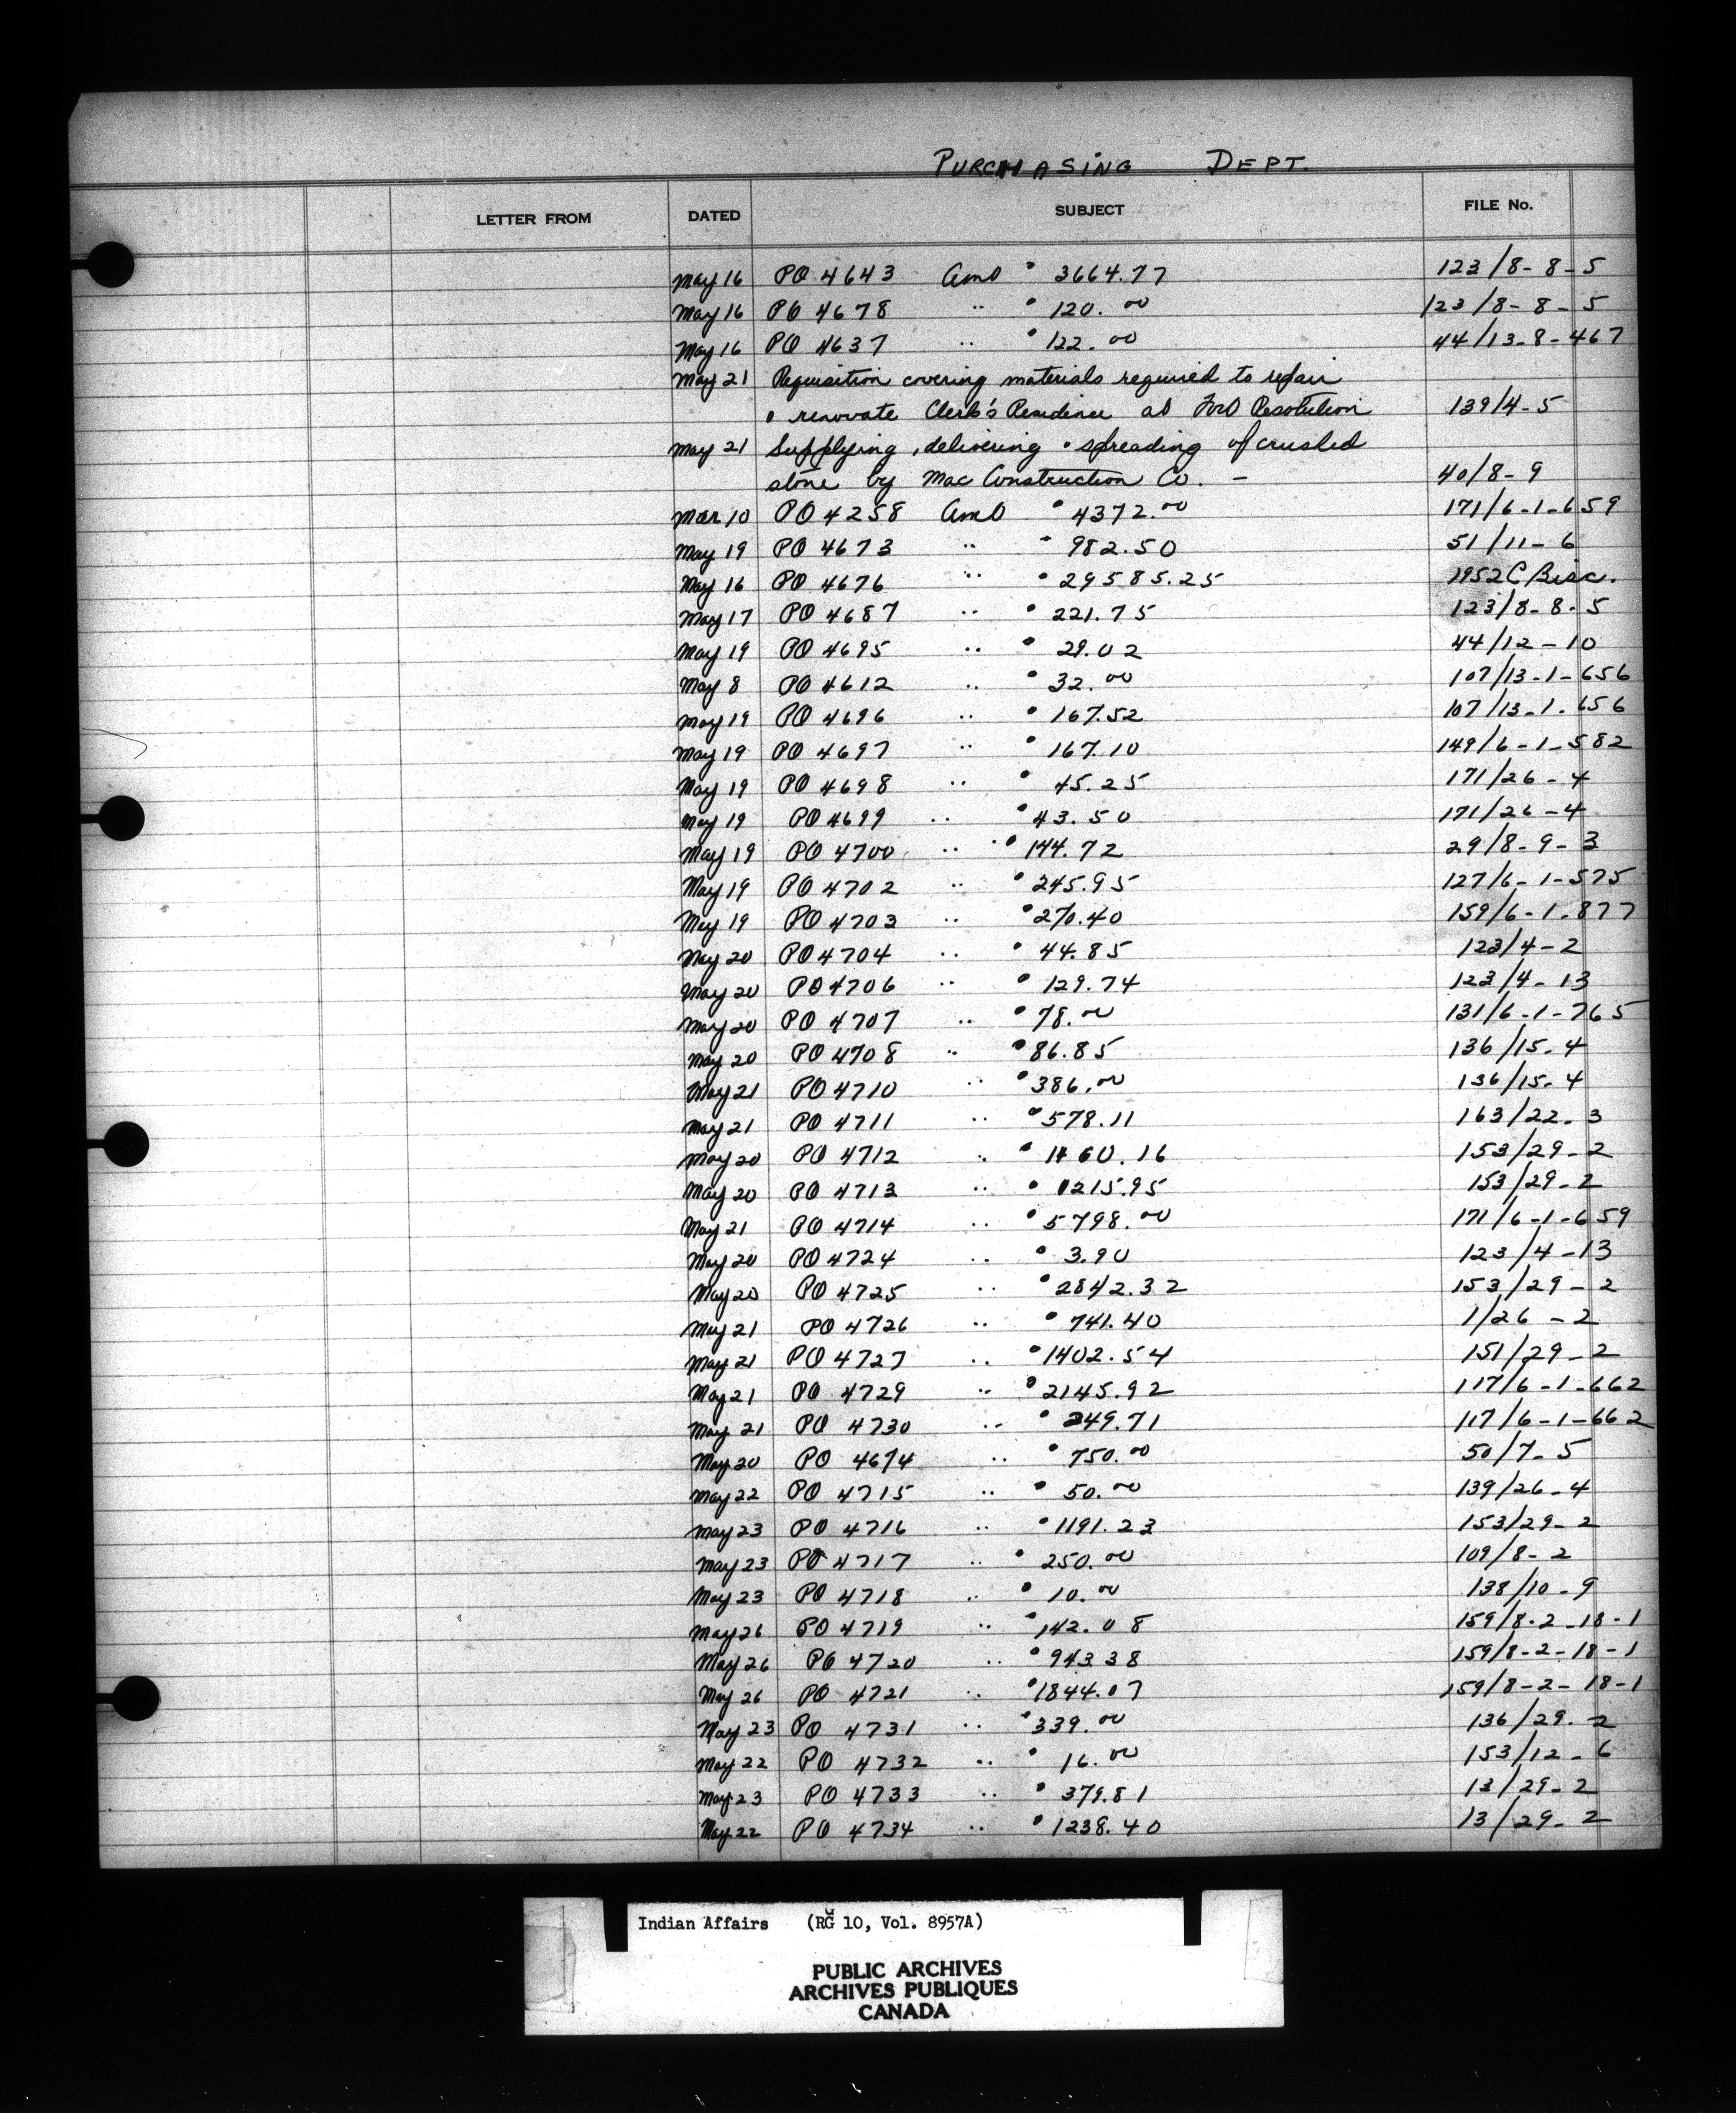 PURCHASING DEPT.
LETTER FROM DATED SUBJECT FILE No.
May 16 PO 4643 Amt 3664.77 123/8-8-5
May 16 PO 4678 " 120.00 123/8-8-5
May 16 PO 4637 " 122.00 44/13-8-467
May 21 Requisition covering materials required to repair
& renovate Clerk's Residence at Fort Resolution 139/4-5
May 21 Supplying, delivering & spreading of crushed
stone by Mac Construction Co. - 40/8-9
Mar 10 PO 4258 Amt 4372.00 171/6-1-659
May 19 PO 4673 " 982.50 51/11-6
May 16 PO 4676 " 29585.25 1952 C Bisc.
May 17 PO 4687 " 221.75 123/8-8-5
May 19 PO 4695 " 29.02 44/12-10
May 8 PO 4612 " 32.00 107/13-1-656
May 19 PO 4696 " 167.52 107/13-1-656
May 19 PO 4697 " 167.10 149/6-1-582
May 19 PO 4698 " 45.25 171/26-4
May 19 PO 4699 " 43.50 171/26-4
May 19 PO 4700 " 144.72 29/8-9-3
May 19 PO 4702 " 245.95 127/6-1-575
May 19 PO 4703 " 270.40 159/6-1-877
May 20 PO 4704 " 44.85 123/4-2
May 20 PO 4706 " 129.74 123/4-13
May 20 PO 4707 " 78.00 131/6-1-765
May 20 PO 4708 " 86.85 136/15-4
May 21 PO 4710 " 386.00 136/15-4
May 21 PO 4711 " 578.11 163/22-3
May 20 PO 4712 " 1160.16 153/29-2
May 20 PO 4713 " 1215.95 153/29-2
May 21 PO 4714 " 5798.00 171/6-1-659
May 20 PO 4724 " 3.90 123/4-13
May 20 PO 4725 " 2842.32 153/29-2
May 21 PO 4726 " 741.40 1/26-2
May 21 PO 4727 " 1402.54 151/29-2
May 21 PO 4729 " 2145.92 117/6-1-662
May 21 PO 4730 " 249.71 117/6-1-662
May 20 PO 4674 " 750.00 50/7-5
May 22 PO 4715 " 50.00 139/26-4
May 23 PO 4716 " 1191.23 153/29-2
May 23 PO 4717 " 250.00 109/8-2
May 23 PO 4718 " 10.00 138/10-9
May 26 PO 4719 " 142.08 159/8-2-18-1
May 26 PO 4720 " 943.38 159/8-2-18-1
May 26 PO 4721 " 1844.07 159/8-2-18-1
May 23 PO 4731 " 339.00 136/29-2
May 22 PO 4732 " 16.00 153/12-6
May 23 PO 4733 " 379.81 13/29-2
May 22 PO 4734 " 1238.40 13/29-2
Indian Affairs (RG 10, Vol. 8957A)
PUBLIC ARCHIVES
ARCHIVES PUBLIQUES
CANADA